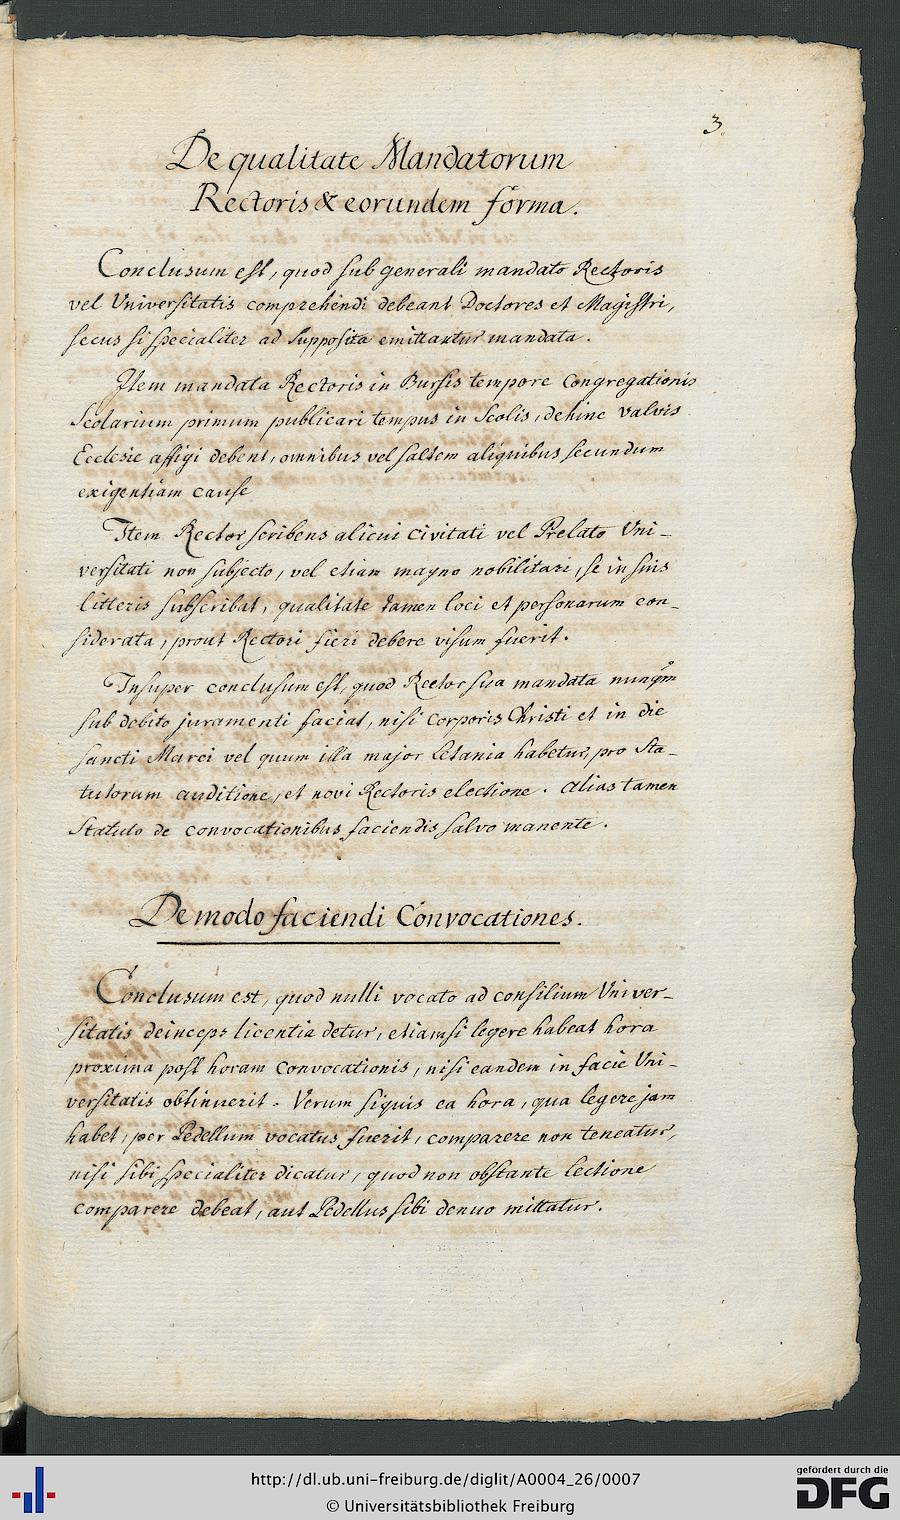 3.
De qualitate Mandatorum
Rectoris & eorundem forma.
Conclusum est, quod sub generali mandato Rectoris
vel Universitatis comprehendi debeant Doctores et Magistri,
secus si specialiter ad supposita emittantur mandata.
Item mandata Rectoris in Bursis tempore Congregationis
Scolarium primum publicari tempus in Scolis, dehinc valvis
Ecclesie affigi debent, omnibus vel saltem aliquibus secundum
exigentiam cause
Item Rector scribens alicui civitati vel Prelato Uni-
versitati non subjecto, vel etiam magno nobilitari, se in suis
litteris subscribat, qualitate tamen loci et personarum con-
siderata, prout Rectori fieri debere visum fuerit.
Insuper conclusum est, quod Rector sua mandata nunqm
sub debito juramenti faciat, nisi Corporis Christi et in die
sancti Marci vel quum illa major Letania habetur, pro sta-
tutorum auditione, et novi Rectoris electione. alias tamen
statuto de convocationibus faciendis salvo manente.
De modo faciendi Convocationes.
Conclusum est, quod nulli vocato ad consilium Univer-
sitatis deinceps licentia detur, etiamsi legere habeat hora
proxima post horam convocationis, nisi eandem in facie Uni-
versitatis obtinuerit. Verum siquis ea hora, qua legere jam
habet, per Pedellum vocatus fuerit, comparere non teneatur,
nisi sibi specialiter dicatur, quod non obstante lectione
comparere debeat, aut Pedellus sibi denuo mittatur.
http://dl.ub.uni-freiburg.de/diglit/A0004_26/0007
© Universitätsbibliothek Freiburg
gefördert durch die
DFG